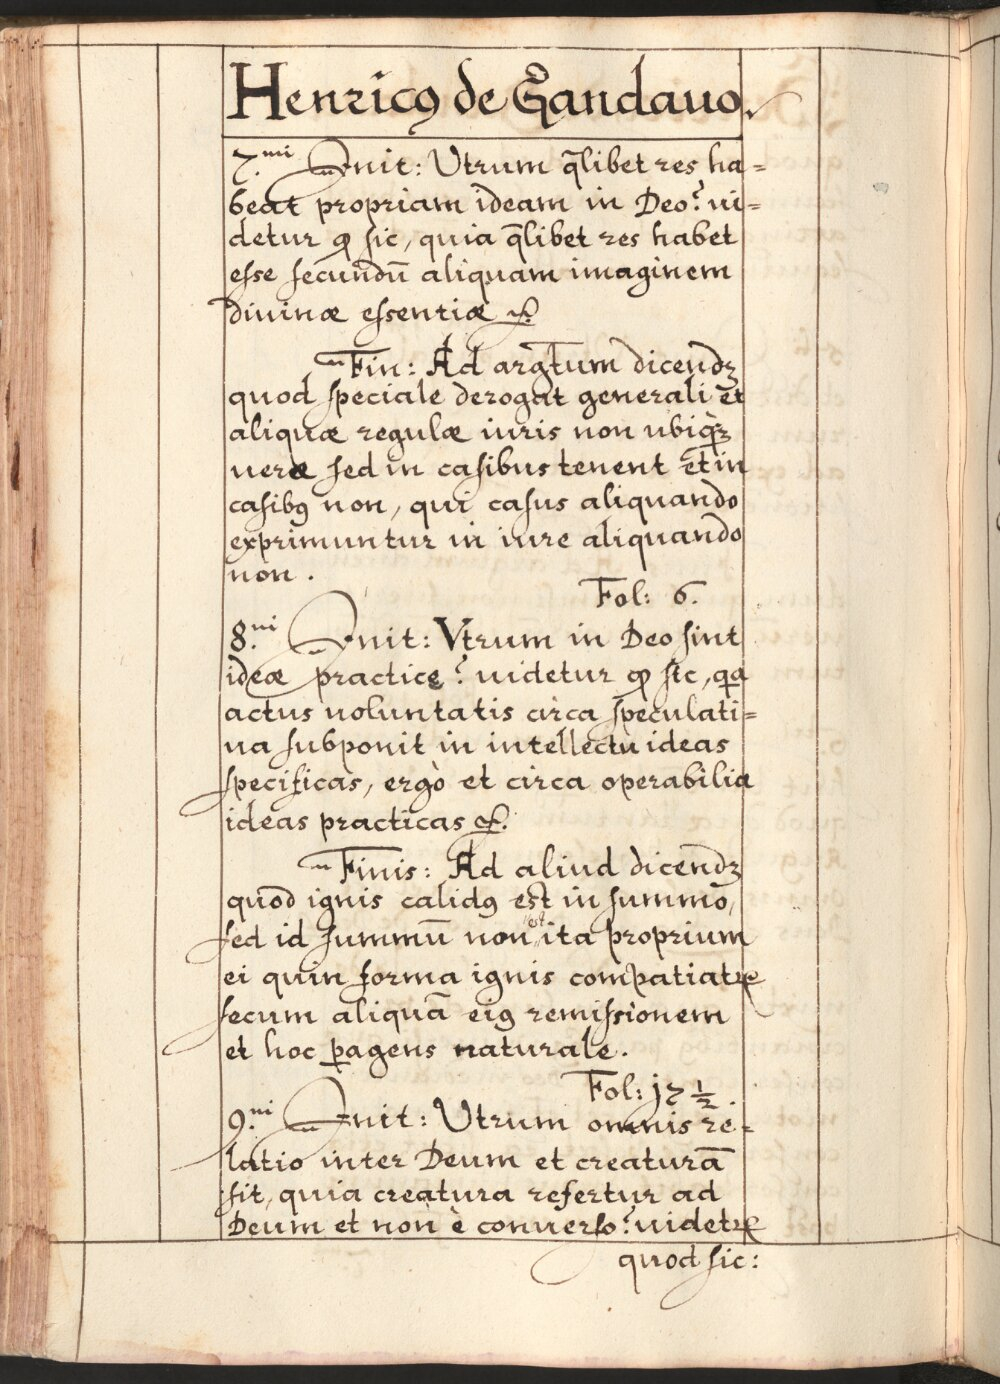 Henricꝰ de Gandauo.
7.mi Init: Utrum q̃libet res ha=
beat propriam ideam in Deo? ui=
detur ꝙ sic, quia q̃libet res habet
esse secundũ aliquam imaginem
diuinæ essentiæ &.
Fin: Ad argt̃um dicendꝫ
quod speciale derogat generali et
aliquæ regulæ iuris non ubiqꝫ
ueræ sed in casibus tenent et in
casibꝰ non, qui casus aliquando
exprimuntur in iure aliquando
non.
Fol: 6.
8.ui Init: Vtrum in Deo sint
ideæ practicę? uidetur ꝙ sic, qa
actus uoluntatis circa speculati=
ua supponit in intellectu ideas
specificas, ergò et circa operabilia
ideas practicas &.
Finis: Ad aliud dicendꝫ
quod ignis calidꝰ est in summo,
sed id summũ non est ita proprium
ei quin forma ignis compatiatꝛ
secum aliquã eiꝰ remissionem
et hoc ꝑ agens naturale.
Fol: 17 ½.
9.ni Init: Utrum omnis re=
latio inter Deum et creaturã
sit, quia creatura refertur ad
Deum et non è conuerso? uidetꝛ
quod sic: